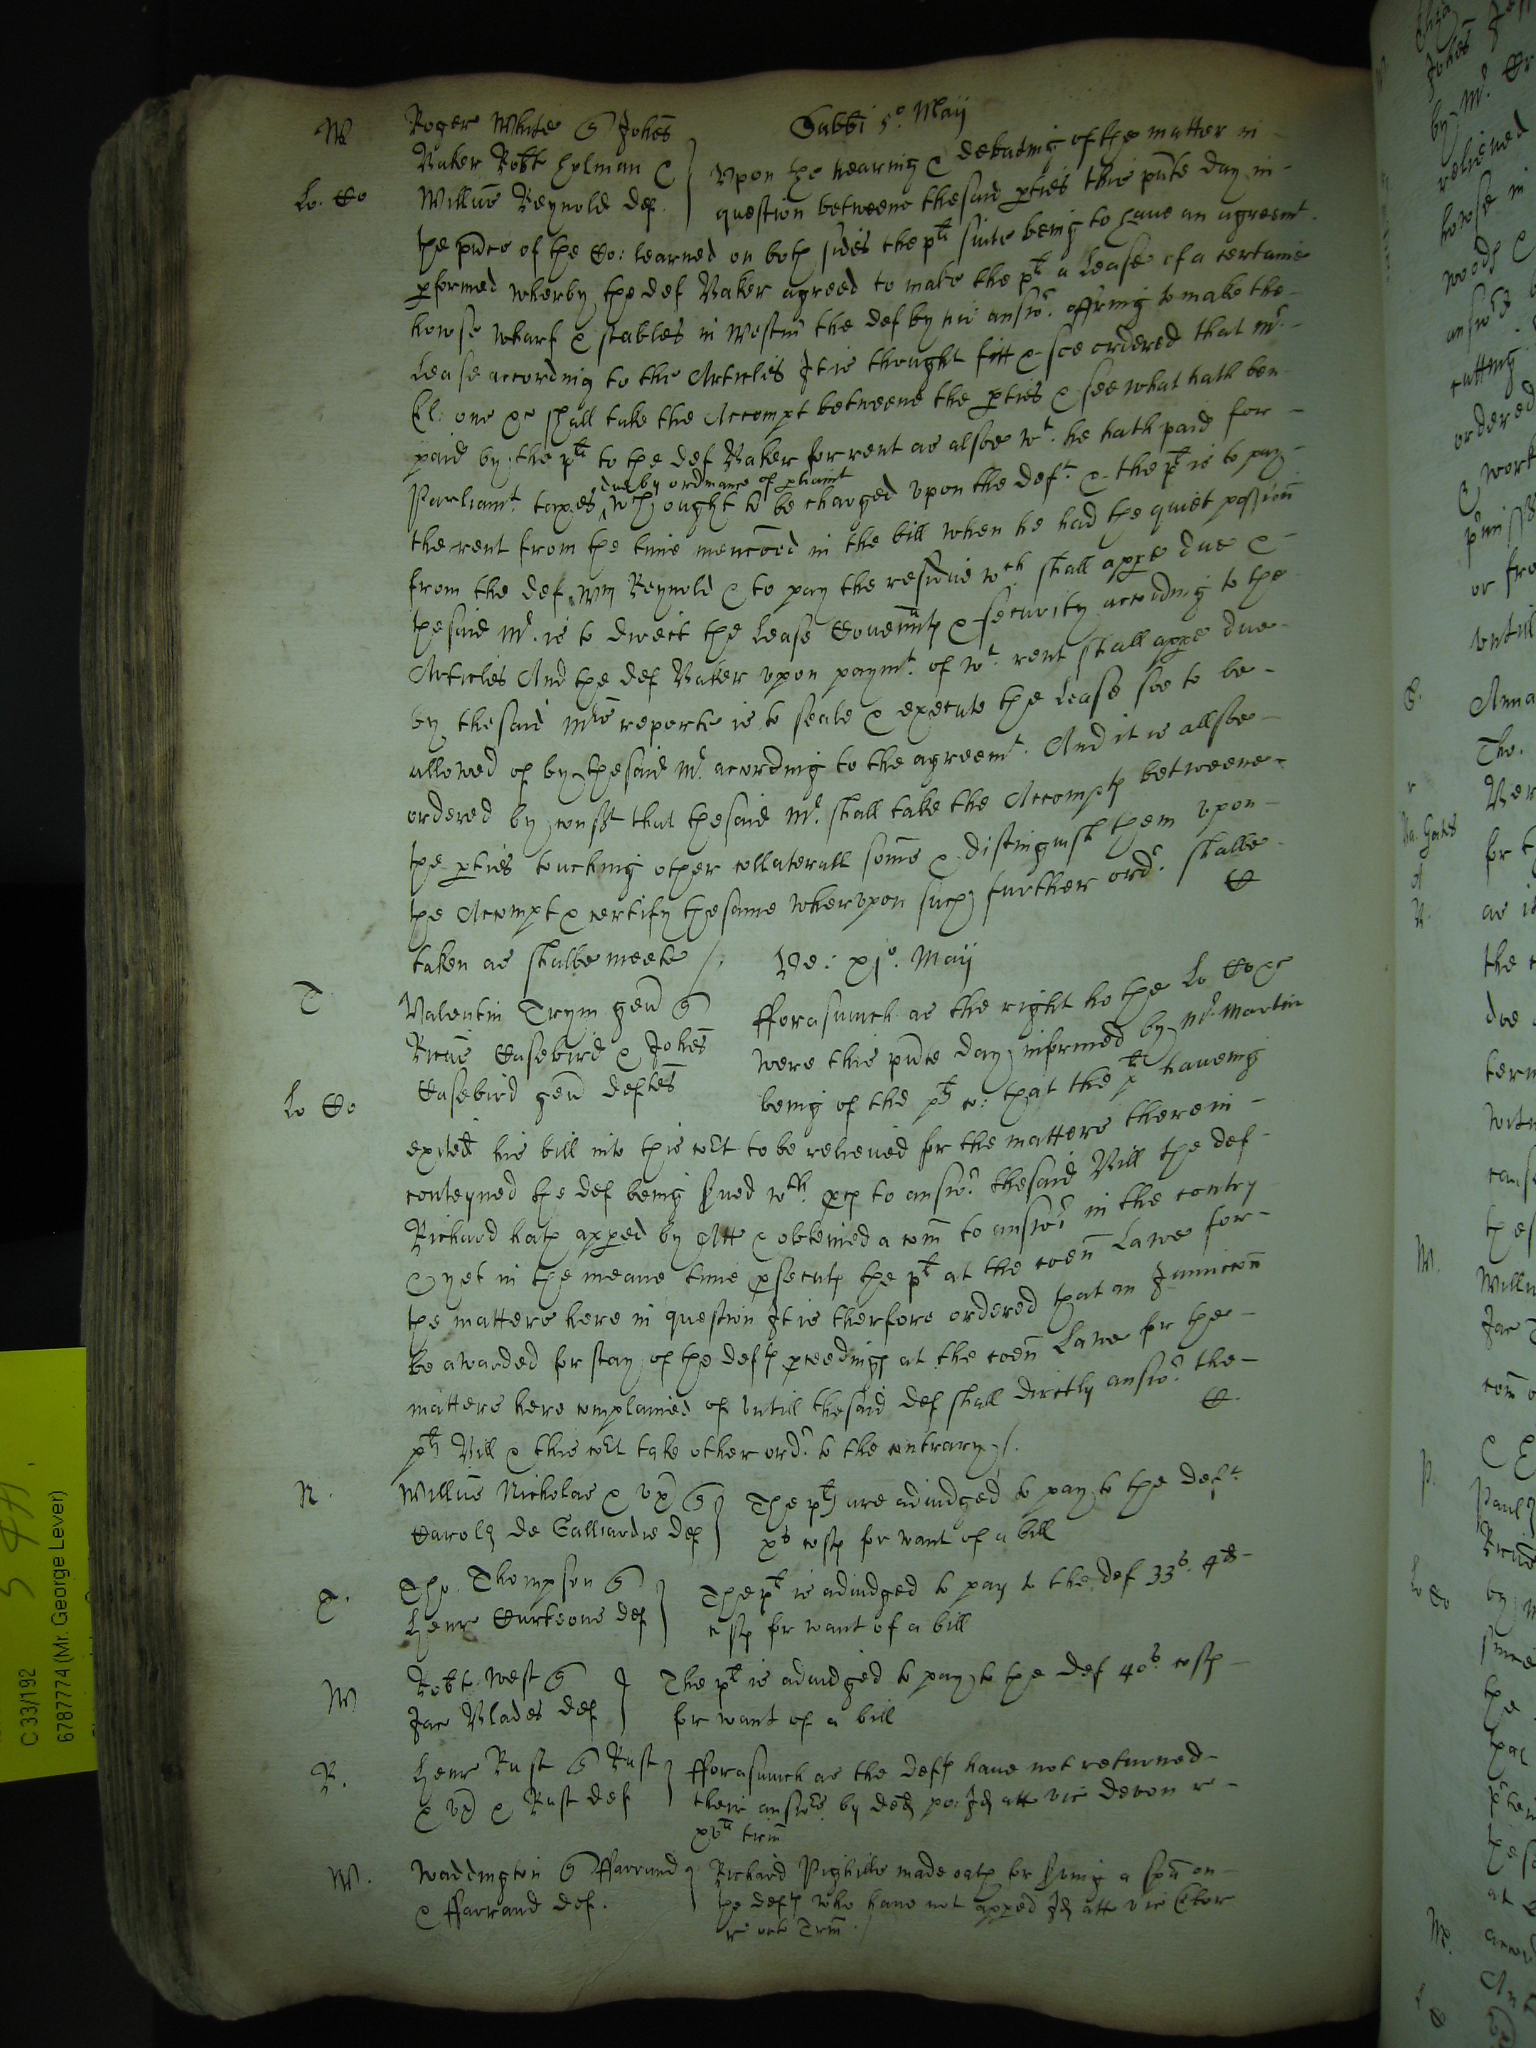 W Roger White q Johes Sabbi 5º. Maij
Baker Robte Hylman &
Lo. Co Willus Reynold def. Upon the hearing & debating of the matter in
question betweene thesaid pties this pnte day in
the pnce of the Co: learned on both sides the plt suite being to have an agreemt.
pformed wherby the def Baker agreed to make the plt a Lease of a certaine
howse wharf & stables in Westm the def by his answr. offring to make the
Lease according to the Articles It is thought fitt & soe ordered that Mr.
El: one &c shall take the Accompt betweene the pties & see what hath ben
paid by the plt to the def Baker for rent as alsoe wt. he hath paid for
Parliamt. taxes due by ordinance of pliamt wch ought to be charged upon the deft. & the plt is to pay
the rent from the time mencoed in the bill when he had the quiet possion
from the def Wm Reynold & to pay the residue wch shall appe due &
thesaid Mr. is to direct the Lease Covennts & security according to the
Articles And the def Baker upon paymt. of wt. rent shall appe due
by thesaid Mrs reporte is to seale & execute the Lease soe to be
allowed of by thesaid Mr. acording to the agreemt. And it is allsoe
ordered by consst that thesaid Mr. shall take the Accompts betweene
the pties touching other collaterall somes & distinguish them upon
the Accompt & certify thesame wherupon such further ordr. shalbe
taken as shalbe meete /.
Ve: xjº. Maij
T Valentin Trym gen q fforasmuch as the right ho the Lo Co &c
Ricus Casebird & Johes were this pnte day informed by Mr. Martin
Lo Co Casebird gen deftes being of the plts co: that the plt haveing
exited his bill into this cort to be relieved for the matters therein
conteyned the def being sved wth. pcs to answr. thesaid Bill the def
Richard hath apped by Att & obteined a com to answr in the contry
& yet in the meane time psecuts the plt at the coen Lawe for
the matters here in question It is therfore ordered that an Iniuccon
be awarded for stay of the defts pceedings at the coen Lawe for the
matters here complained of untill thesaid def shall dirctly answr. the
plts Bill & this cort take other ordr. to the contrary /.
N. Willus Nicholas & ux q The plts are adiudged to pay to the deft.
Carolz de Galliardis def xs costs for want of a bill
T. Tho. Thompson q The plt is adiudged to pay to the def 33s. 4d
Henr Curteous def costs for want of a bill
W Robte West q The plt is adiudged to pay to the def 40s. costs
Jac Blades def for want of a bill
R. Henr Rust q Rust fforasmuch as the defts have not returned
& ux & Rust def their answrs by ded po: Id att vic devon r
xva trin
W. Waddington q ffarrand Richard Pighills made oath for sving a spa on
& ffarrand def. the defts who have not apped Id att vic Ebor
Trin.
C 33/192
6787774 (Mr. George Lever)